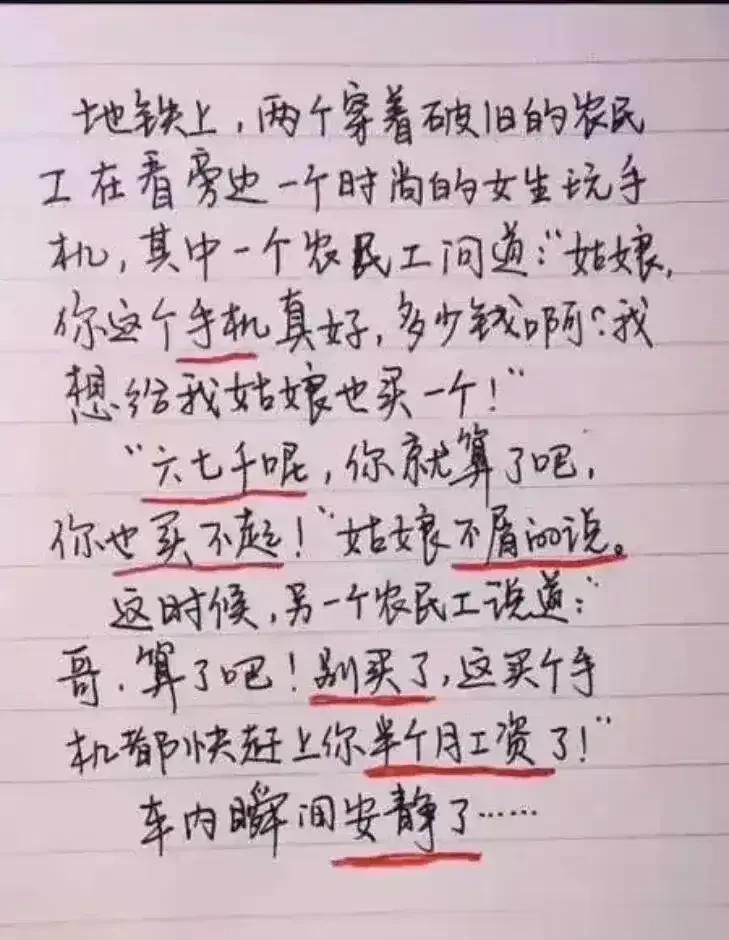 地铁上，两个穿着破旧的农民
工在看旁边一个时尚的女生玩手
机，其中一个农民工问道：“姑娘，
你这个手机真好，多少钱啊？我
想给我姑娘也买一个！”
“六七千呢，你就算了吧，
你也买不起！”姑娘不屑的说。
这时候，另一个农民工说道：“
哥，算了吧！别买了，这买个手
机都快赶上你半个月工资了！”
车内瞬间安静了……